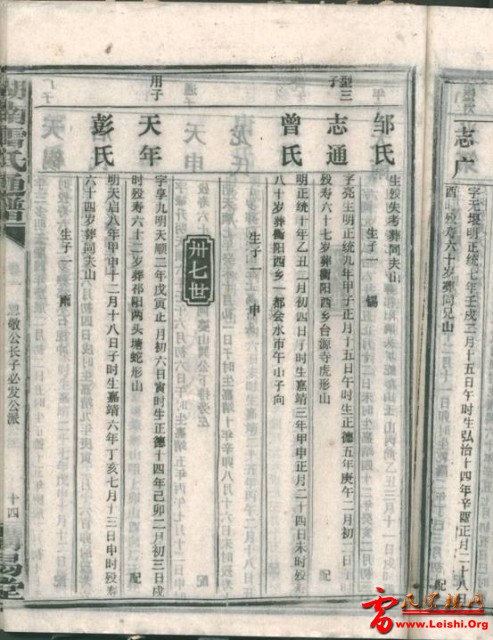 志广
字无垠明正统七年壬戌二月十五日午时生弘治十四年辛酉正月二十八日
酉时殁寿六十岁葬同兄山
配
邹氏
生殁失考葬同夫山
生子一
锡
型三子
志通
字亮生明正统九年甲子正月十五日午时生正德五年庚午二月初二日
殁寿六十七岁葬衡阳西乡台源寺虎形山
配
曾氏
明正统十年乙丑二月初四日子时生嘉靖三年甲申正月二十四日未时殁寿
八十岁葬衡阳西乡一都会水市午山子向
生子一
申
卅七世
用子
天年
字享九明天顺二年戊寅正月初六日寅时生正德十四年己卯二月初三日戌
时殁寿六十二岁葬祁阳两头塘蛇形山
配
彭氏
明天启八年甲申十二月十八日子时生嘉靖六年丁亥七月十三日申时殁寿
六十四岁葬同夫山
生子一
湖南雷氏通谱
思敬公长子必发公派
十四
雷氏宗族网
www.Leishi.Org